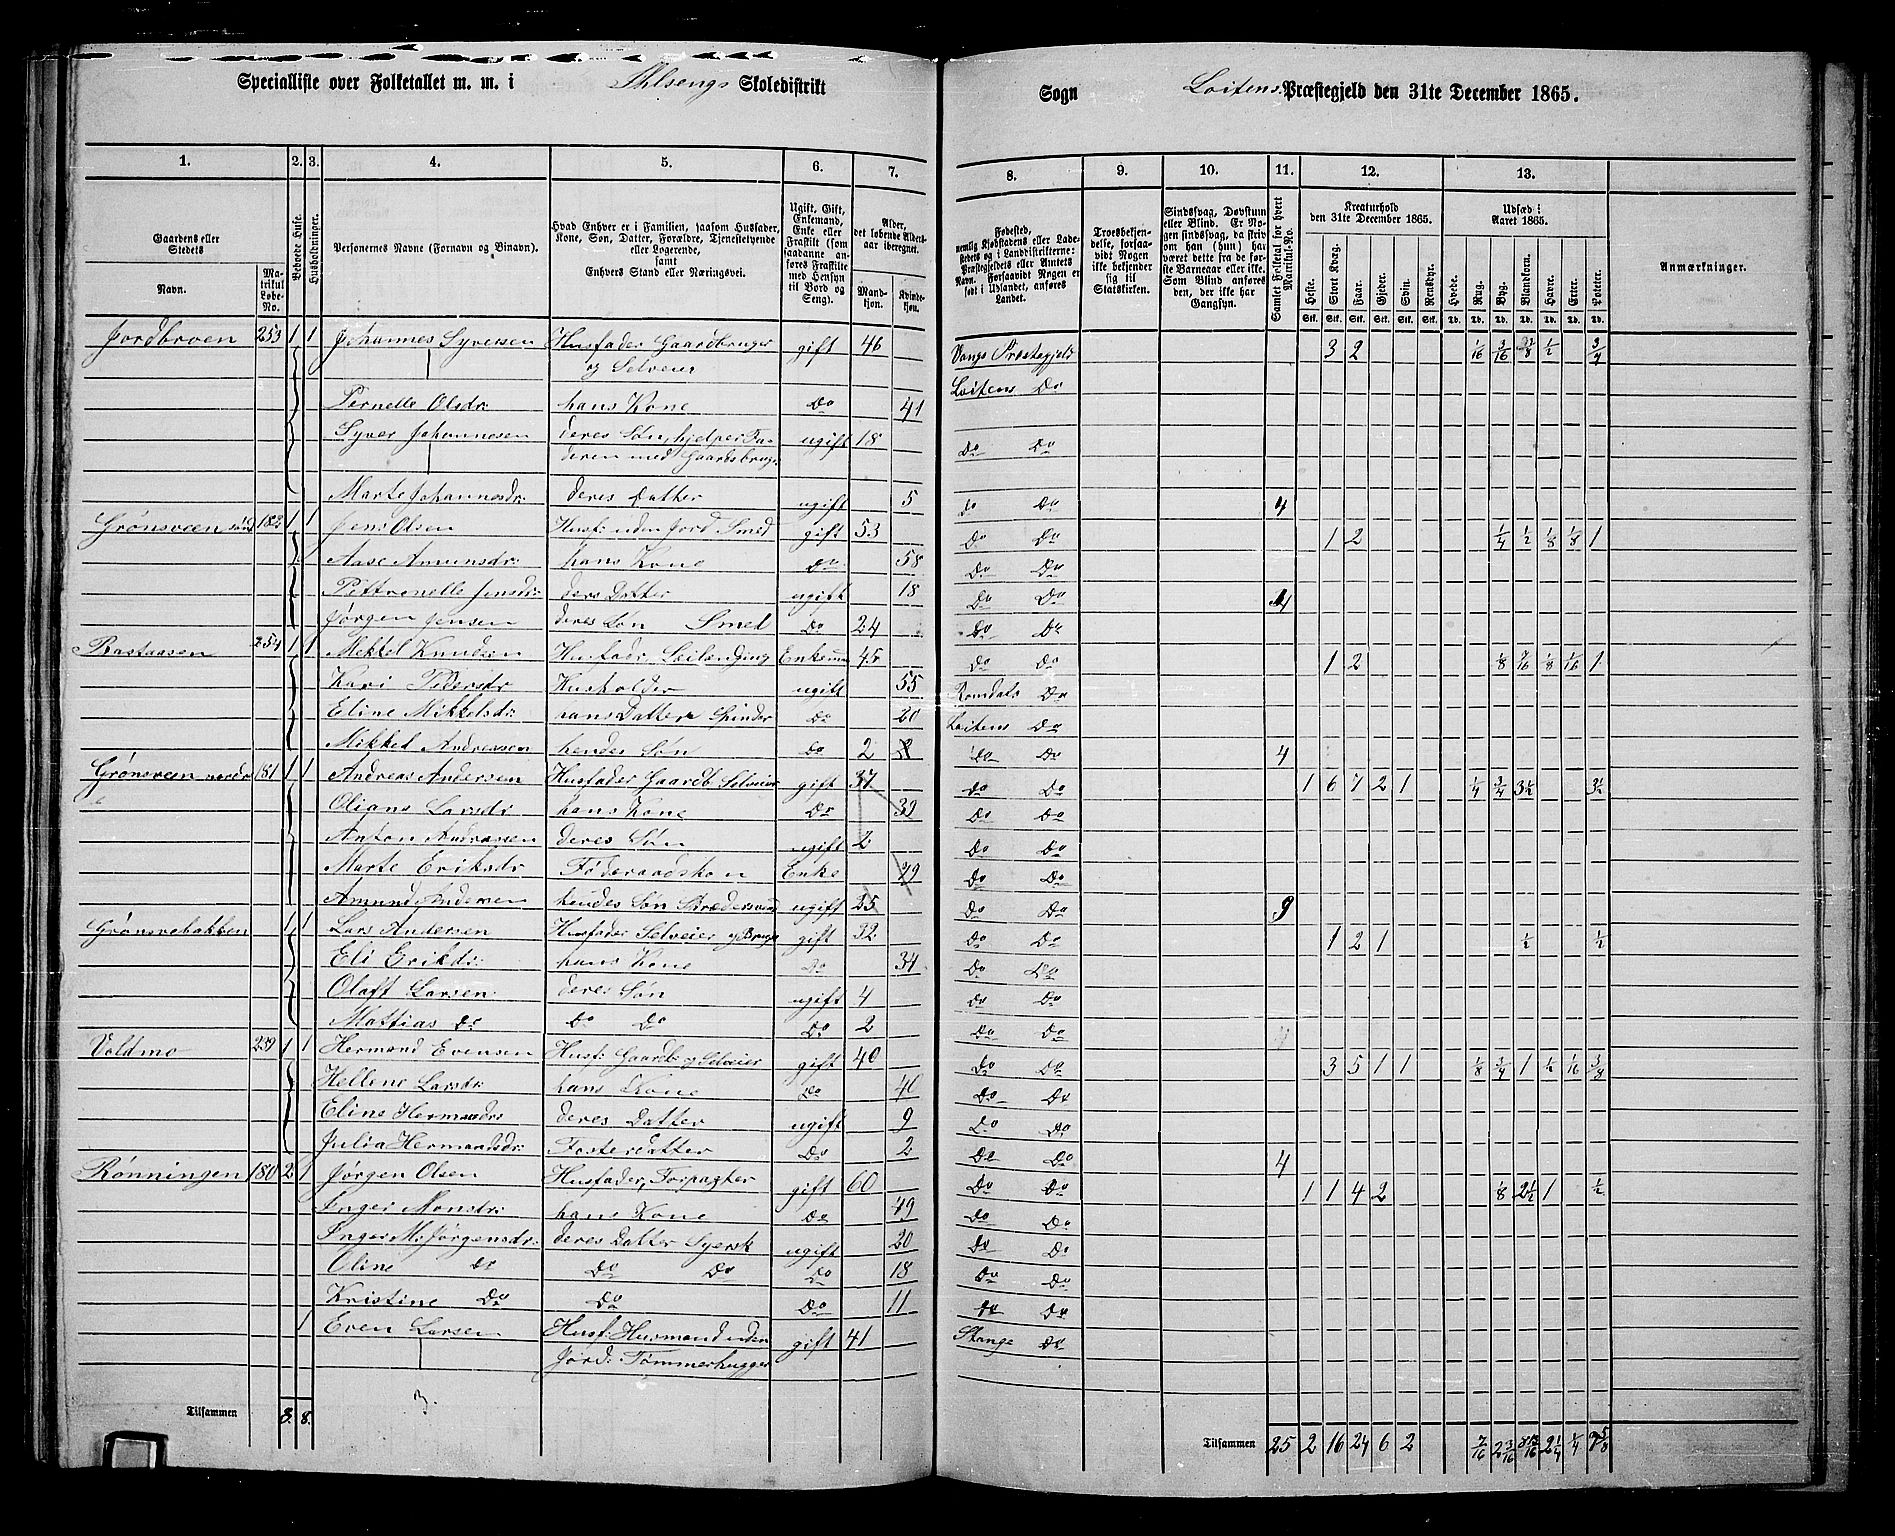 Specialliste over Folketallet m. m. i Ahlsengs Skoledistrikt
Sogn Løitens Præstegjeld den 31te December 1865.
1. 2. 3. 4. 5. 6. 7.
8. 9. 10. 11. 12. 13.
Gaardens eller Stedets
Navn.
Matrikul Løbe-No.
Beboede Huse.
Husholdninger.
Personernes Navne (Fornavn og Binavn).
Hvad Enhver er i Familien, saasom Husfader, Kone, Søn, Datter, Forældre, Tjenestetyende eller Logerende,
samt
Enhvers Stand eller Næringsvei.
Ugift, Gift, Enkemand, Enke eller Fraskilt (som saadanne anføres Fraskilte med Hensyn til Bord og Seng).
Alder, det løbende Aldersaar iberegnet.
Mandkjøn. Kvindekjøn.
Fødested, nemlig Kjøbstadens eller Ladestedets og i Landdistrikterne: Præstegjeldets eller Amtets Navn. Forsaavidt Nogen er født i Udlandet, anføres Landet.
Troesbekjendelse, forsaavidt Nogen ikke bekjender sig til Statskirken.
Sindssvag, Døvstum eller Blind. Er Nogen sindssvag, da skriv om han (hun) har været dette fra de første Barneaar eller ikke. Som Blind anføres den, der ikke har Gangsyn.
Samlet Folketal for hvert Matrikul-No.
Kreaturhold den 31te December 1865.
Heste. Stort Kvæg. Faar. Gjeder. Svin. Rensdyr.
Stk. Stk. Stk. Stk. Stk. Stk.
Udsæd i Aaret 1865.
Hvede. Rug. Byg. Blandkorn. Havre. Erter. Poteter.
Td. Td. Td. Td. Td. Td. Td.
Anmærkninger.
Jordbroen 253 1 1 Johannes Syversen Husfader Gaardbruger gift 46 Vangs Præstegjeld 3 2 1/16 3/16 1/2 3/4
og Selveier
Pernelle Olsdr: hans Kone Do 41 Løitens Do
Syver Johannesen deres Søn, hjelper Fa- ugift 18 Do Do
deren med Gaardsbrug:
Marte Johannesdr: deres Datter ugift 5 Do Do 4
Grønsveen sønd 182 1 1 Jens Olsen Husf: uden Jord Smed gift 53 Do Do 1 2 1/4 1/2 1/8 1/8 1
Aase Amundsdr: hans Kone Do 58 Do Do
Pettronelle Jensdr: deres Datter ugift 18 Do Do 4
Jørgen Jensen deres Søn Smed Do 24 Do Do
Rastaasen 254 1 1 Mekkel Knudsen Husfader, Leilending Enkem 45 Do Do 1 2 1/8 7/16 1/8 1/16 1
Kari Pedersdr Husholder ugift 55 Romdals Do
Eline Mikkelsdr: hans Datter Spinder Do 20 Løitens Do
Mikkel Andreassen hendes Søn Do 2 Do Do 4
Grønsveen nordr 181 1 1 Andreas Andersen Husfader Gaardb Selveier gift 37 Do Do 1 6 7 2 1 1/4 3/4 3 1/2 3 1/2
Oliana Larsdr: hans Kone Do 32 Do Do
Anton Andreasen deres Søn ugift 2 Do Do
Marte Eriksdr Føderaadskon Enke 29 Do Do
Amund Andersen hendes Søn Skrædersvend ugift 25 Do Do 9
Grønsvebakken 1 1 Lars Andersen Husfader Selveier g Brugr gift 32 Do Do 1 2 1 1/2 1/2
Eli Eriksdr: hans Kone Do 34 Do Do
Olaft Larsen deres Søn ugift 4 Do Do
Mattias Do Do Do Do 2 Do Do
Voldmo 239 1 1 Hermand Evensen Husf: Gaardb: og Selveier gift 40 Do Do 3 5 1 1 1/8 3/4 1 1/2 1/16 3/8
Hellene Larsdr: hans Kone Do 40 Do Do
Eline Hermandsdr deres Datter ugift 9 Do Do
Julia Hermandsdr: Fosterdatter Do 2 Do Do 4
Rønningen 180 2 1 Jørgen Olsen Husfader, Forpagter gift 60 Do Do 1 1 4 2 1/8 2 1/2 1 1/2
Inger Monsdr: hans Kone Do 49 Do Do
Inger M: Jørgensdr: deres Datter Syersk ugift 20 Do Do
Oline Do Do Do Do 18 Do Do
Kristine Do Do Do 11 Do Do
1 Even Larsen Husf: Husmand uden gift 41 Stange Do
Jord: Tømmerhugger
3.
Tilsammen 8. 8.
Tilsammen 25 2 16 24 6 2 7/16 2 3/16 2 1/4 1/4 7 5/8